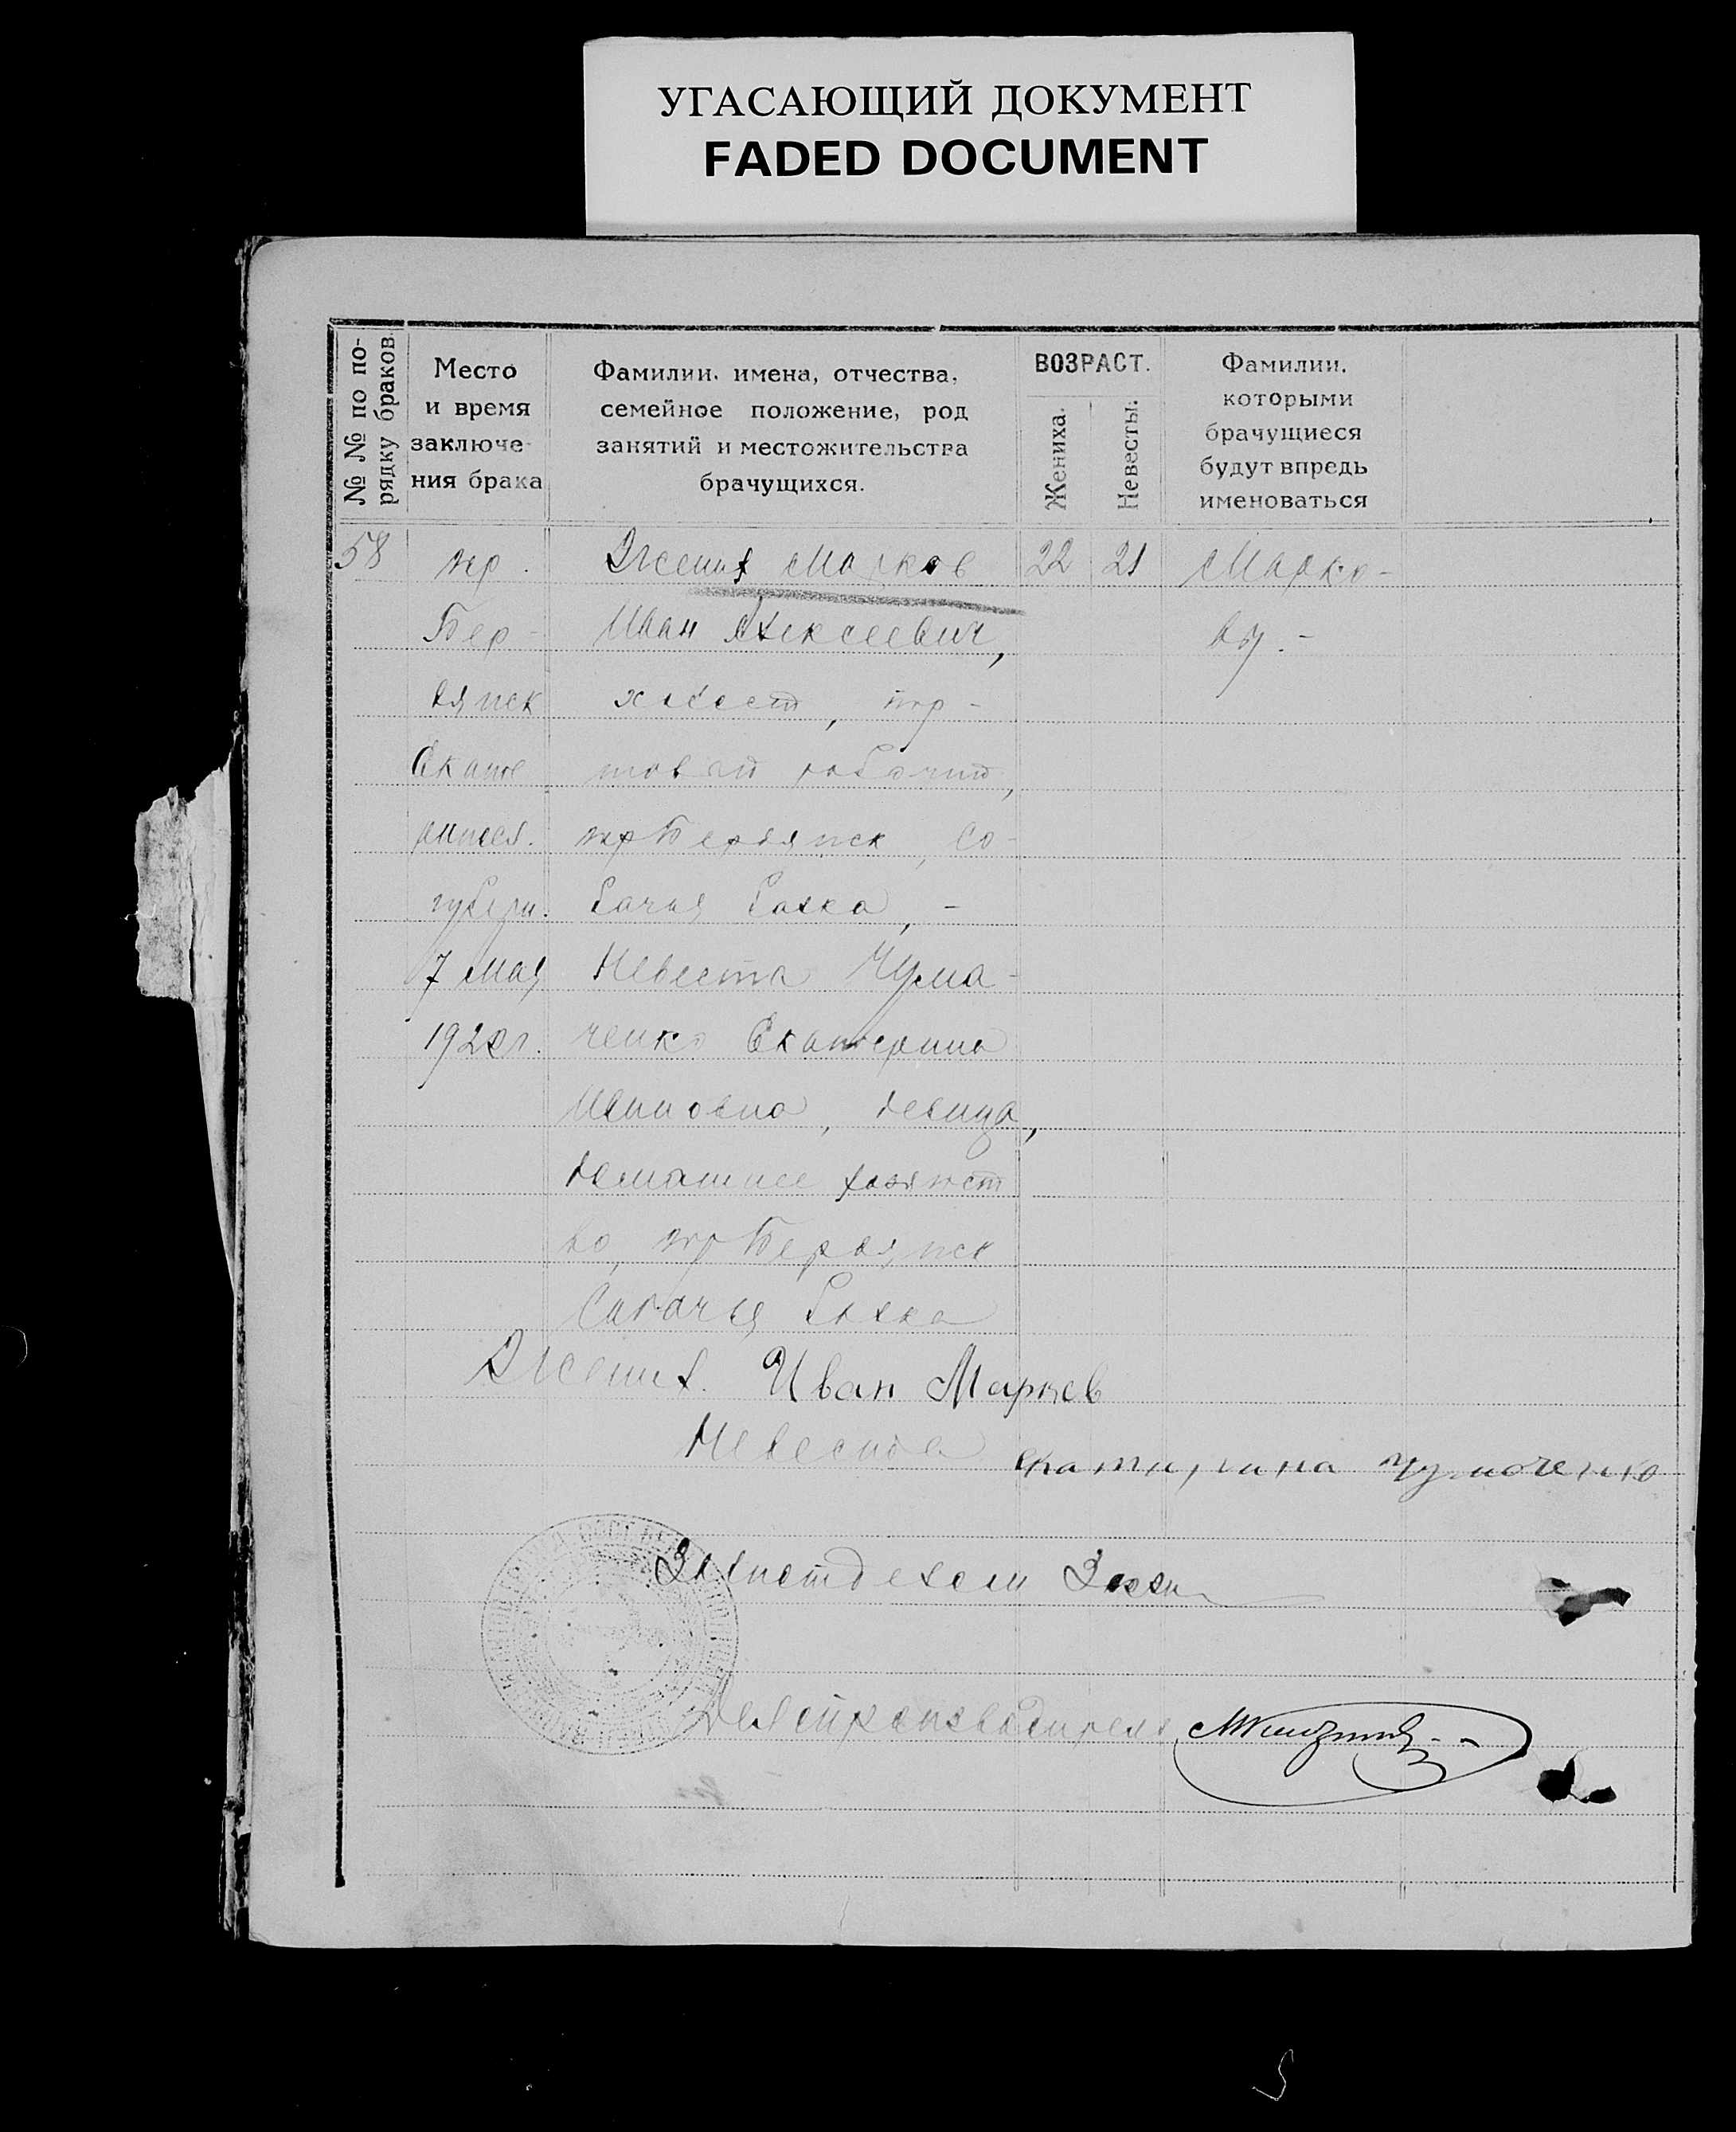 УГАСАЮЩИЙ ДОКУМЕНТ
FADED DOCUMENT
№ № по по-
рядку браков.
Место
и время
заключе-
ния брака
Фамилии, имена, отчества,
семейное положение, род
занятий и местожительства
брачущихся.
ВОЗРАСТ.
Жениха.
Невесты.
Фамилии,
которыми
брачущиеся
будут впредь
именоваться
58
гор.
Бер-
дянск
Екате
риносл.
губерн.
7 мая
1920г.
Жених Марков
Иван Алексеевич,
холост, пор-
товый рабочий,
гор Бердянск, Со-
бачья балка, -
Невеста Чума-
ченко Екатерина
девица,
домашнее хозяйст
во, гор Бердянск
Собачья балка
22
21
Марко-
вы. -
Жених. Иван Марков
Невеста екатирина чумаченко
Делопроизводитель